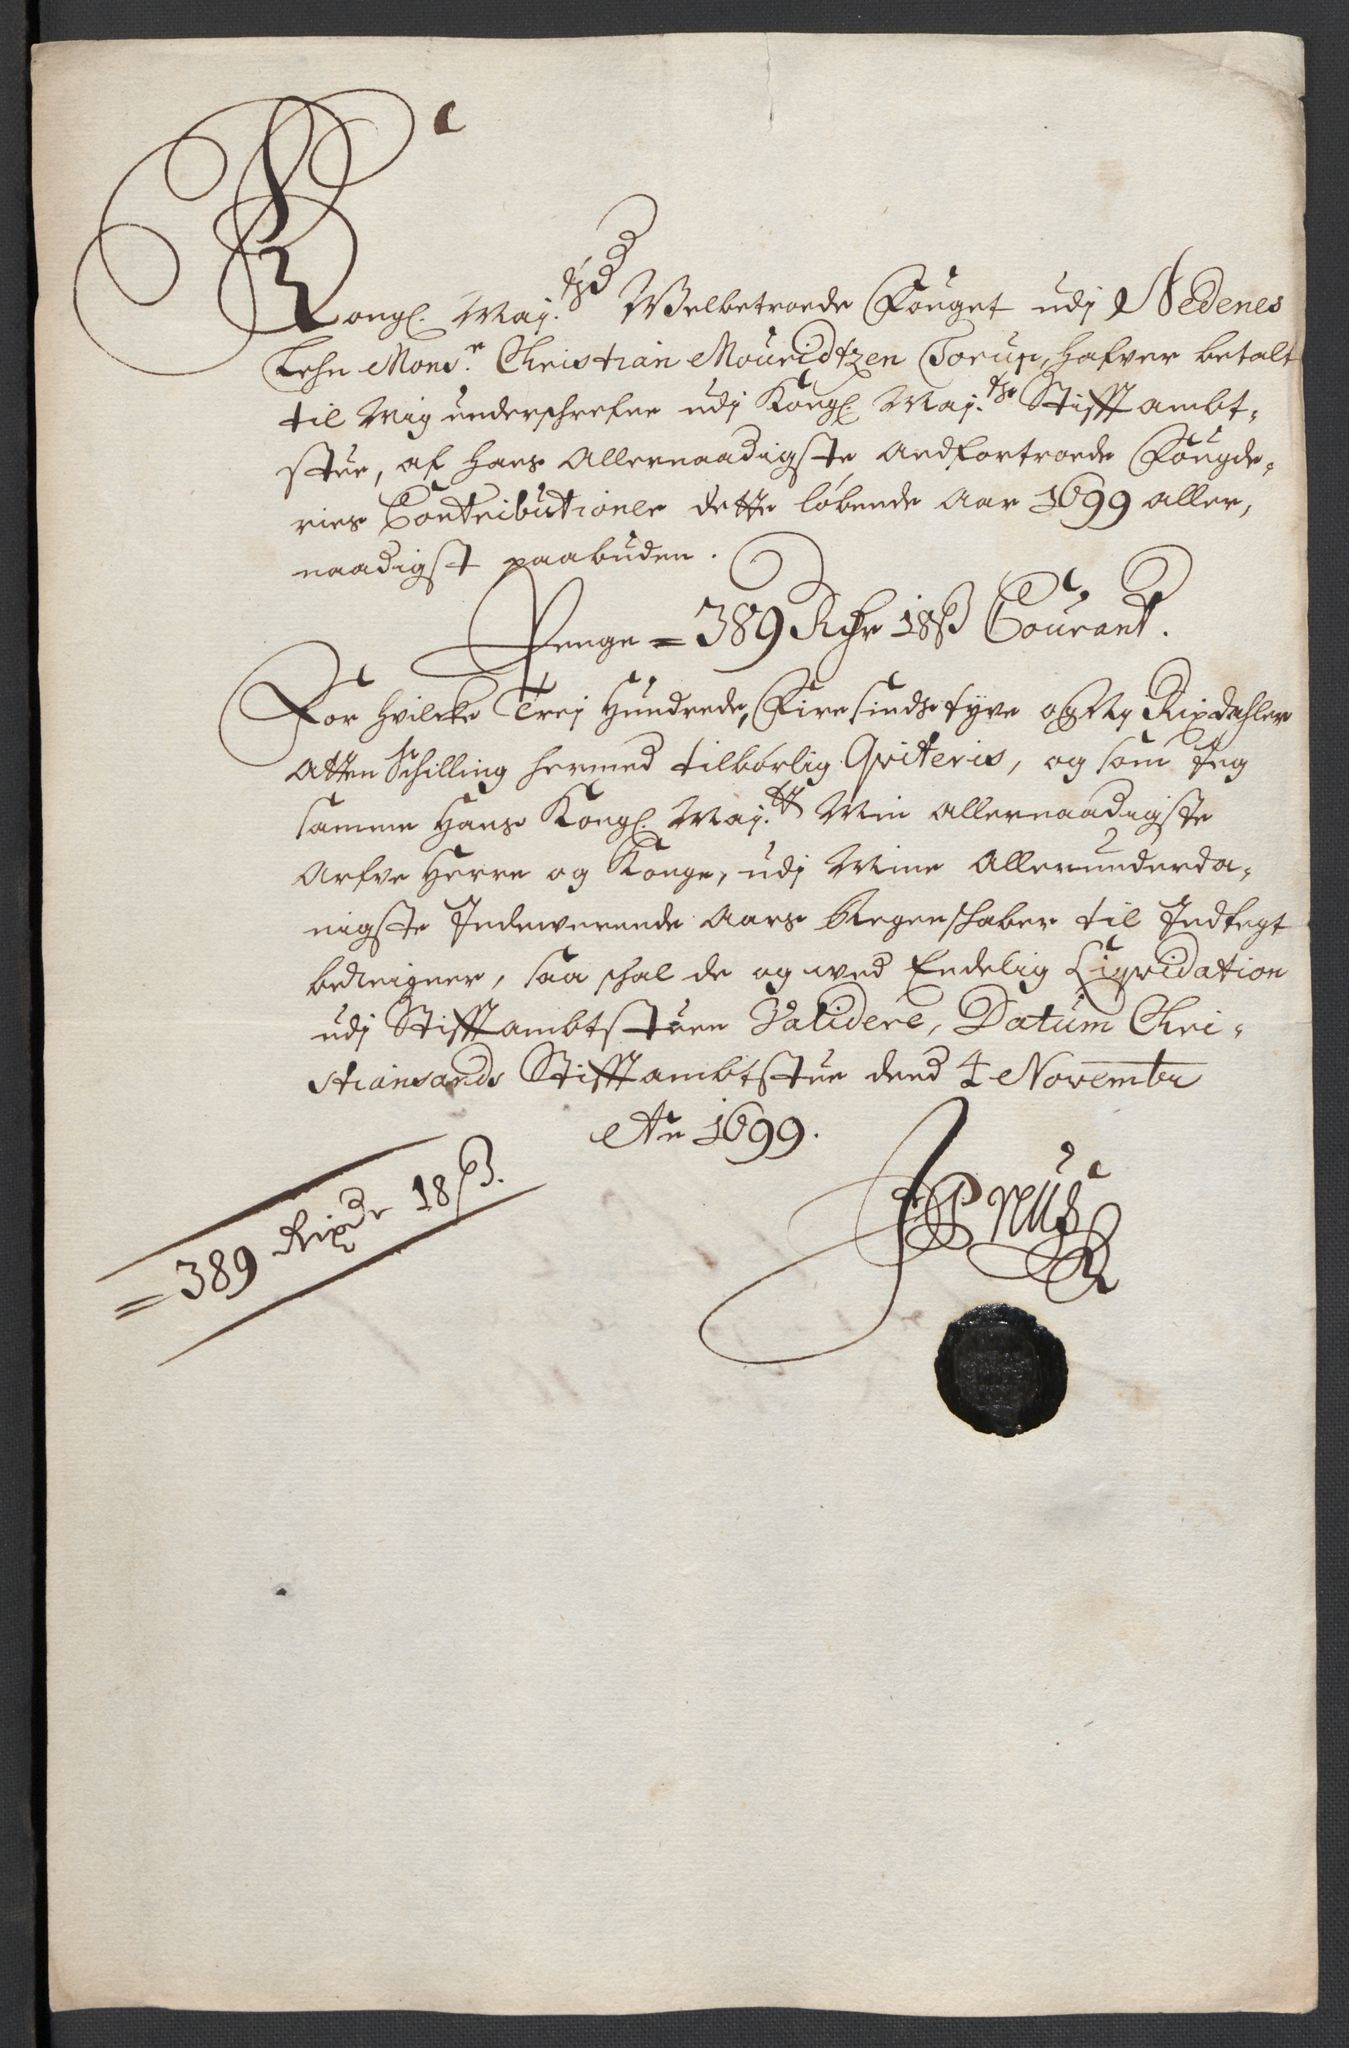 Kongl. May.tts Welbetroede Fouget udj Nedenes
Lehn Mons.r Christian Mouridtzen Torup, hafver betalt
til Mig underschrefne udj Kongl. May.tts Stifft ambt-
stue, af hans Allernaadigste Anfortroede Fougde-
ries Contributioner dette løbende Aar 1699 aller,
naadigst paabuden.
Penge = 389 Rdr 18 ß Courant.
For hvilcke Trej Hundrede, Firesindstyve og Ny Rixdahler
Atten Schilling hermed tilbørlig Qviteris, og som Jeg
samme Hans Kongl. May.tt Min Allernaadigste
Arfve Herre og Konge, udj Mine Allerunderda-
nigste Indeverende Aars Regenschaber til Indtegt
beReigner, saa schal de og wed Endelig Liqvidation
udj Stifftambtstuen Validere, Datum Chri-
stiansands Stifftambtstue dend 4 November
Ao 1699.
= 389 Rixdr 18 ß.